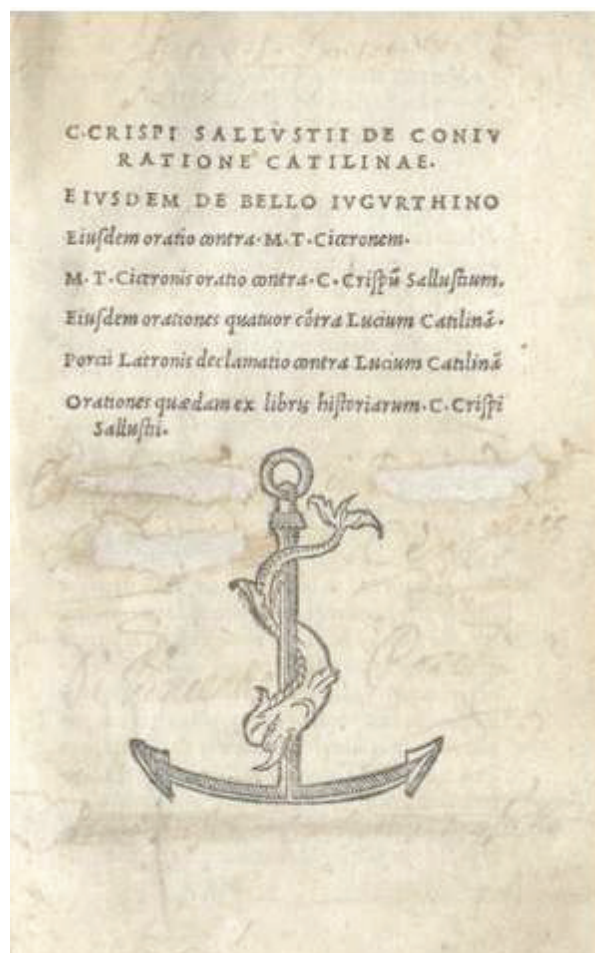 C·CRISPI SALLVSTII DE CONIV
RATIONE CATILINAE.
EIVSDEM DE BELLO IVGVRTHINO
Eiuſdem oratio contra·M·T·Ciceronem·
M·T·Ciceronis oratio contra·C·Criſpũ Salluſtium.
Eiuſdem orationes quatuor cõtra Lucium Catilinã·
Porcii Latronis declamatio contra Lucium Catilinã
Orationes quædam ex libris hiſtoriarum·C·Criſpi
Salluſtii·